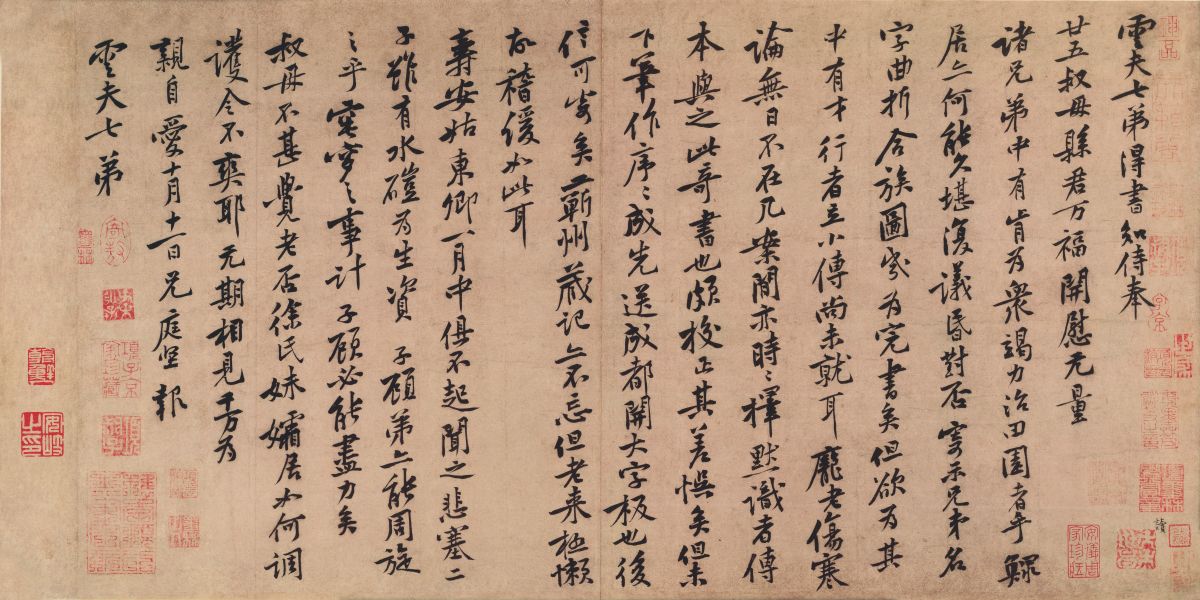 雲夫七弟得書知侍奉
廿五叔母縣君万福開慰无量
諸兄弟中有肯為衆竭力治田園者乎鰥
居亦何能久堪復議昬對否寄示兄弟名
字曲折合族圖歲為完書矣但欲為其
中有才行者立小傳尚未就耳龐老傷寒
論無日不在几案間亦時〻擇默識者傳
本與之此奇書也頗校正其差悮矣但未
下筆作序〻成先送成都開大字板也後
信可寄矣二蘄州藏記亦不忘但老来極懶
故稽緩如此耳
壽安姑東卿一月中俱不起聞之悲塞二
子雖有水磑為生資子顧弟亦能周旋
之乎宅穸之事計子顧必能盡力矣
叔母不甚覺老否徐氏妹孀居如何調
護令不爽耶无期相見千万為
親自愛十月十一日兄庭堅報
雲夫七弟